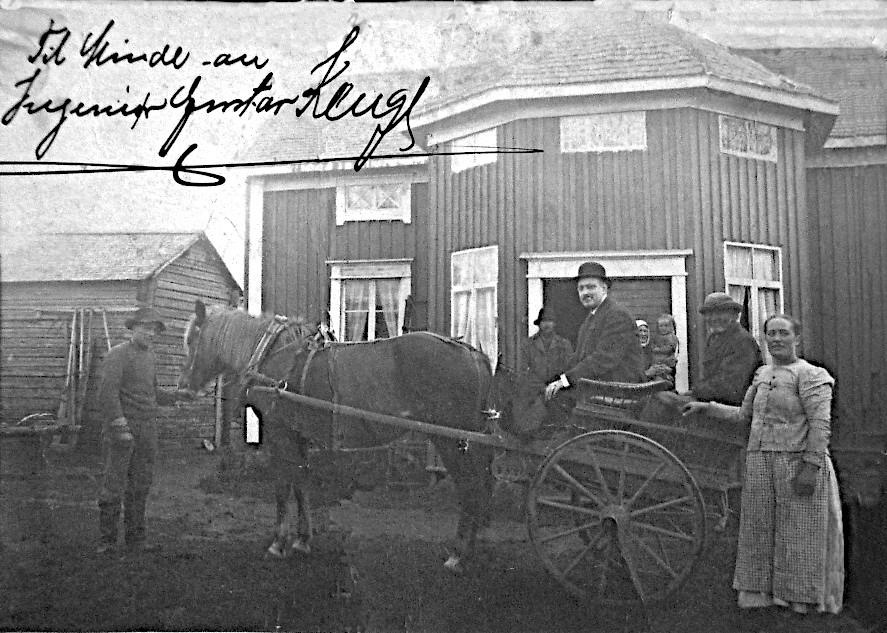 Til Minde av
Ingeniør Gustav